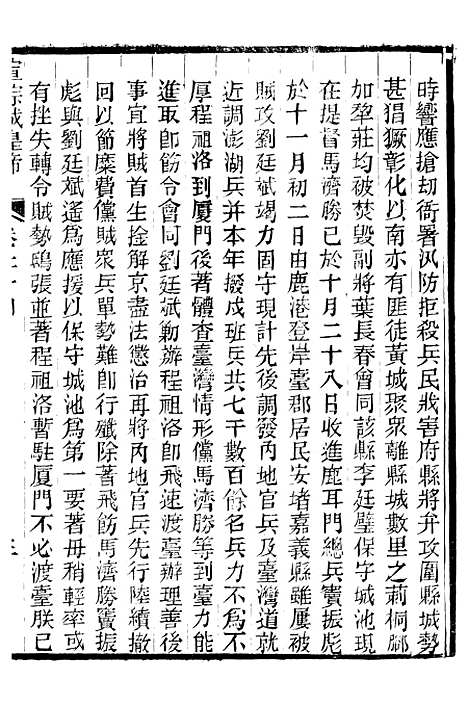 時響應搶劫衙署汛防拒殺兵民戕害府縣將弁攻圍縣城勢
甚猖獗彰化以南亦有匪徒黃城聚眾離縣城數里之莿桐腳
加犂莊均被焚毀副將葉長春會同該縣李廷璧保守城池現
在提督馬濟勝已於十月二十八日收進鹿耳門總兵竇振彪
於十一月初二日由鹿港登岸臺郡居民安堵嘉義縣雖屢被
賊攻劉廷斌竭力固守現計先後調發內地官兵及臺灣道就
近調澎湖兵并本年撥戍班兵共七千數百餘名兵力不為不
厚程祖洛到厦門後著體查臺灣情形儻馬濟勝等到臺力能
進取即飭令會同劉廷斌勦辦程祖洛即飛速渡臺辦理善後
事宜將賊首生擒解京盡法懲治再將內地官兵先行陸續撤
回以節糜費儻賊眾兵單勢難即行殲除著飛飭馬濟勝竇振
彪與劉廷斌遙為應援以保守城池為第一要著毋稍輕率或
有挫失轉令賊勢鴟張並著程祖洛暫駐厦門不必渡臺朕已
宣宗成皇帝
卷二十四
三